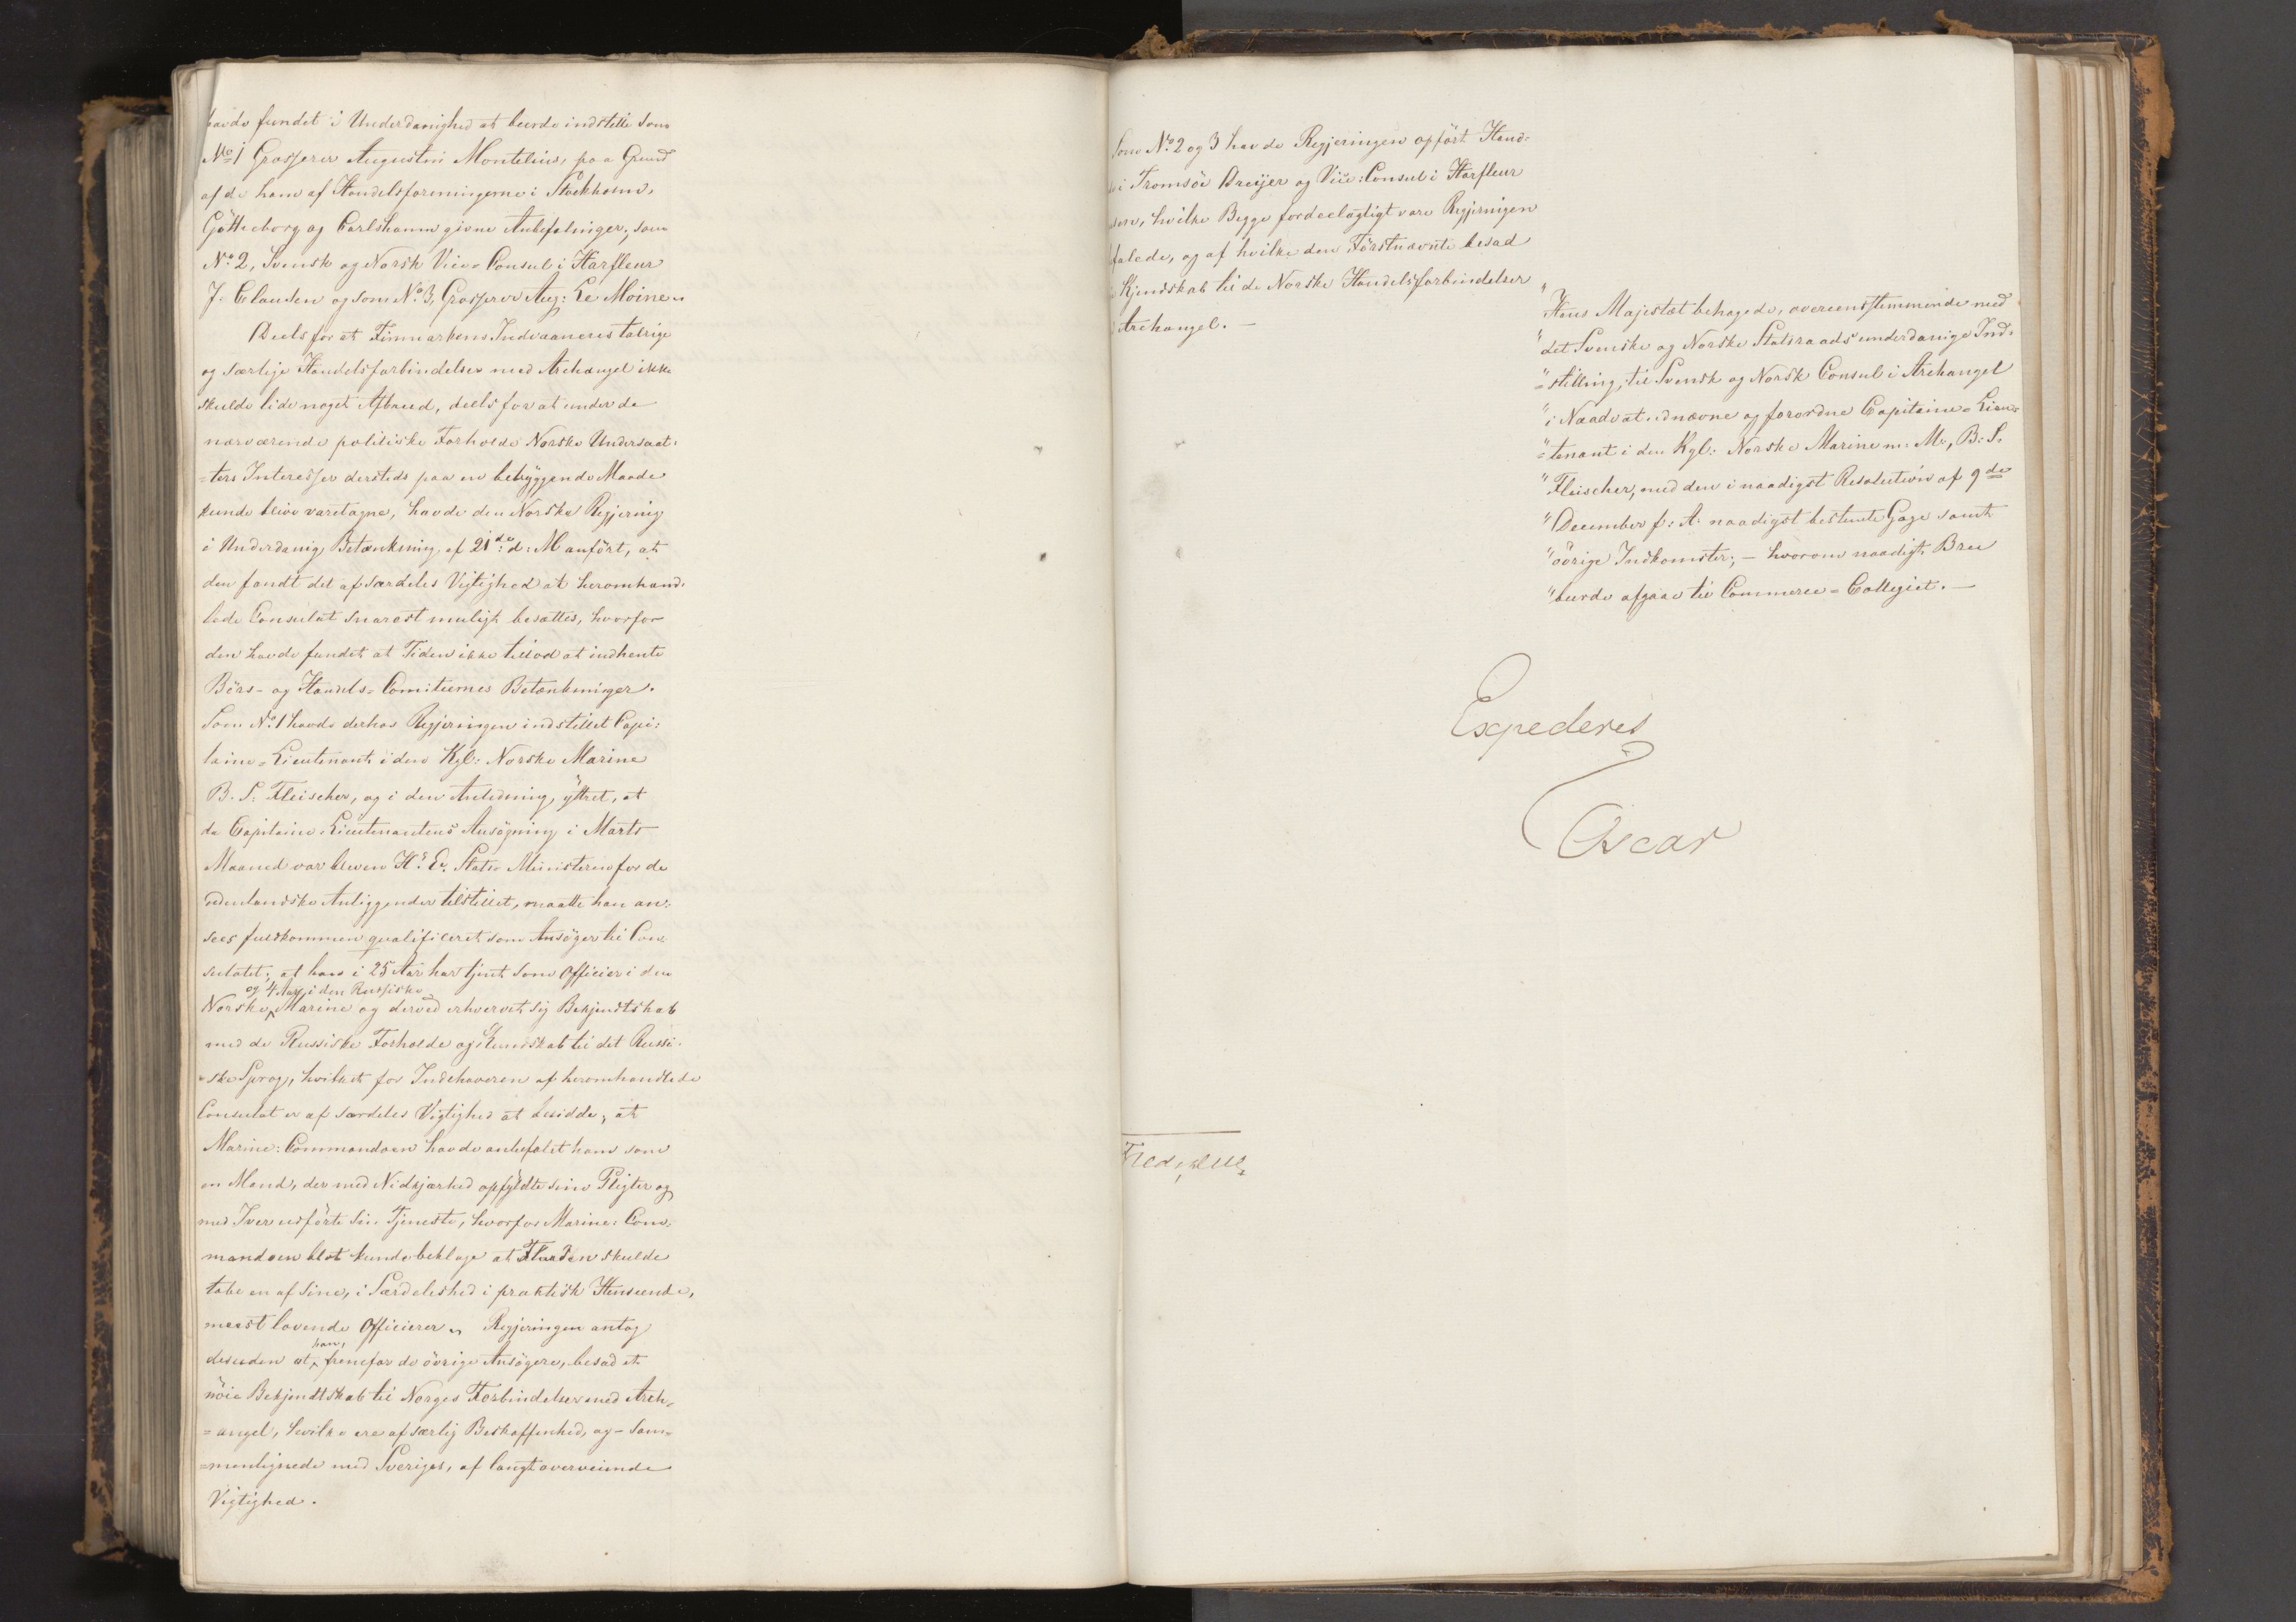 havde fundet i Underdanighed at burde indstille som
No 1 Grosserer Augustin Montelius, paa Grund
af de ham af Handelsforeningerne i Stockholm,
Götheborg og Carlshamn givne Anbefalinger; som
No 2, Svensk og Norsk Vice-Consul i Harfleur
J. Clausen og som No 3, Grosserer Aug: Le Moine.
Deels for at Finmarkens Indvaaneres talrige
og særlige Handelsforbindelser med Archangel ikke
skulde lide noget Afbræk, deels for at under de
nærværende politiske Forholde Norske Undersaat-
=ters Interesser dersteds paa en betryggende Maade
kunde blive varetagne, havde den Norske Regjering
i Underdanig Betænkning af 21de d: M anført, at
den fandt det af særdeles Vigtighed at heromhand-
lede Consulat snarest muligt besættes, hvorfor
den havde fundet at Tiden ikke tillod at indhente
Börs- og Handels-Comiteernes Betænkninger.
Som No 1 havde derhos Regjeringen indstillet Capi-
taine-Lieutenant i den Kgl: Norske Marine
B. S. Fleischer, og i den Anledning yttret, at
da Capitaine-Lieutenantens Ansøgning i Marts
Maaned var bleven Hs E. Stats-Ministeren for de
udenlandske Anliggender tilstillet, maatte han an-
sees fuldkommen qualificeret som Ansøger til Con-
sulatet; at han i 25 Aar har tjent som Officier i den
og 4 Aar i den Russiske
Norske Marine og derved erhvervet sig Bekjendtskab
med de Russiske Forholde og Kundskab til det Russi-
=ske Sprog, hvilket for Indehaveren af heromhandlede
Consulat er af særdeles Vigtighed at besidde; at
Marine-Commandoen havde anbefalet ham som
en Mand, der med Nidkjærhed opfyldte sine Pligter og
med Iver udförte sin Tjeneste, hvorfor Marine-Com-
mandoen blot kunde beklage at Flaaden skulde
tabe en af sine, i Særdeleshed i praktisk Henseende,
meest lovende Officierer. Regjeringen antog
han,
desuden at fremfor de övrige Ansögere, besad et
nöie Bekjendtskab til Norges Forbindelser med Arch-
=angel, hvilke ere af særlig Beskaffenhed, og – sam-
=menlignede med Sveriges, af langt overveiende
Vigtighed.
Som No 2 og 3 havde Regjeringen opfört Hand-
i Tromsöe Dreyer og Vice-Consul i Harfleur
hvilke Begge fordeelagtigt vare Regjeringen
falede, og af hvilke den Förstnævnte besad
Kjendskab til de Norske Handelsforbindelser
Archangel. —
"Hans Majestæt behagede, overeensstemmende med
"det Svenske og Norske Statsraads underdanige Ind-
"=stilling, til Svensk og Norsk Consul i Archangel
"i Naade at udnævne og forordne Capitaine-Lieu-
"=tenant i den Kgl: Norske Marine m. M., B: S.
"Fleischer, med den i naadigst Resolution af 9de
"December f: A: naadigst bestemte Gage samt
"övrige Indkomster; — hvorom naadigt Brev
"burde afgaae til Commerce-Collegiet. —
Expederes
Oscar